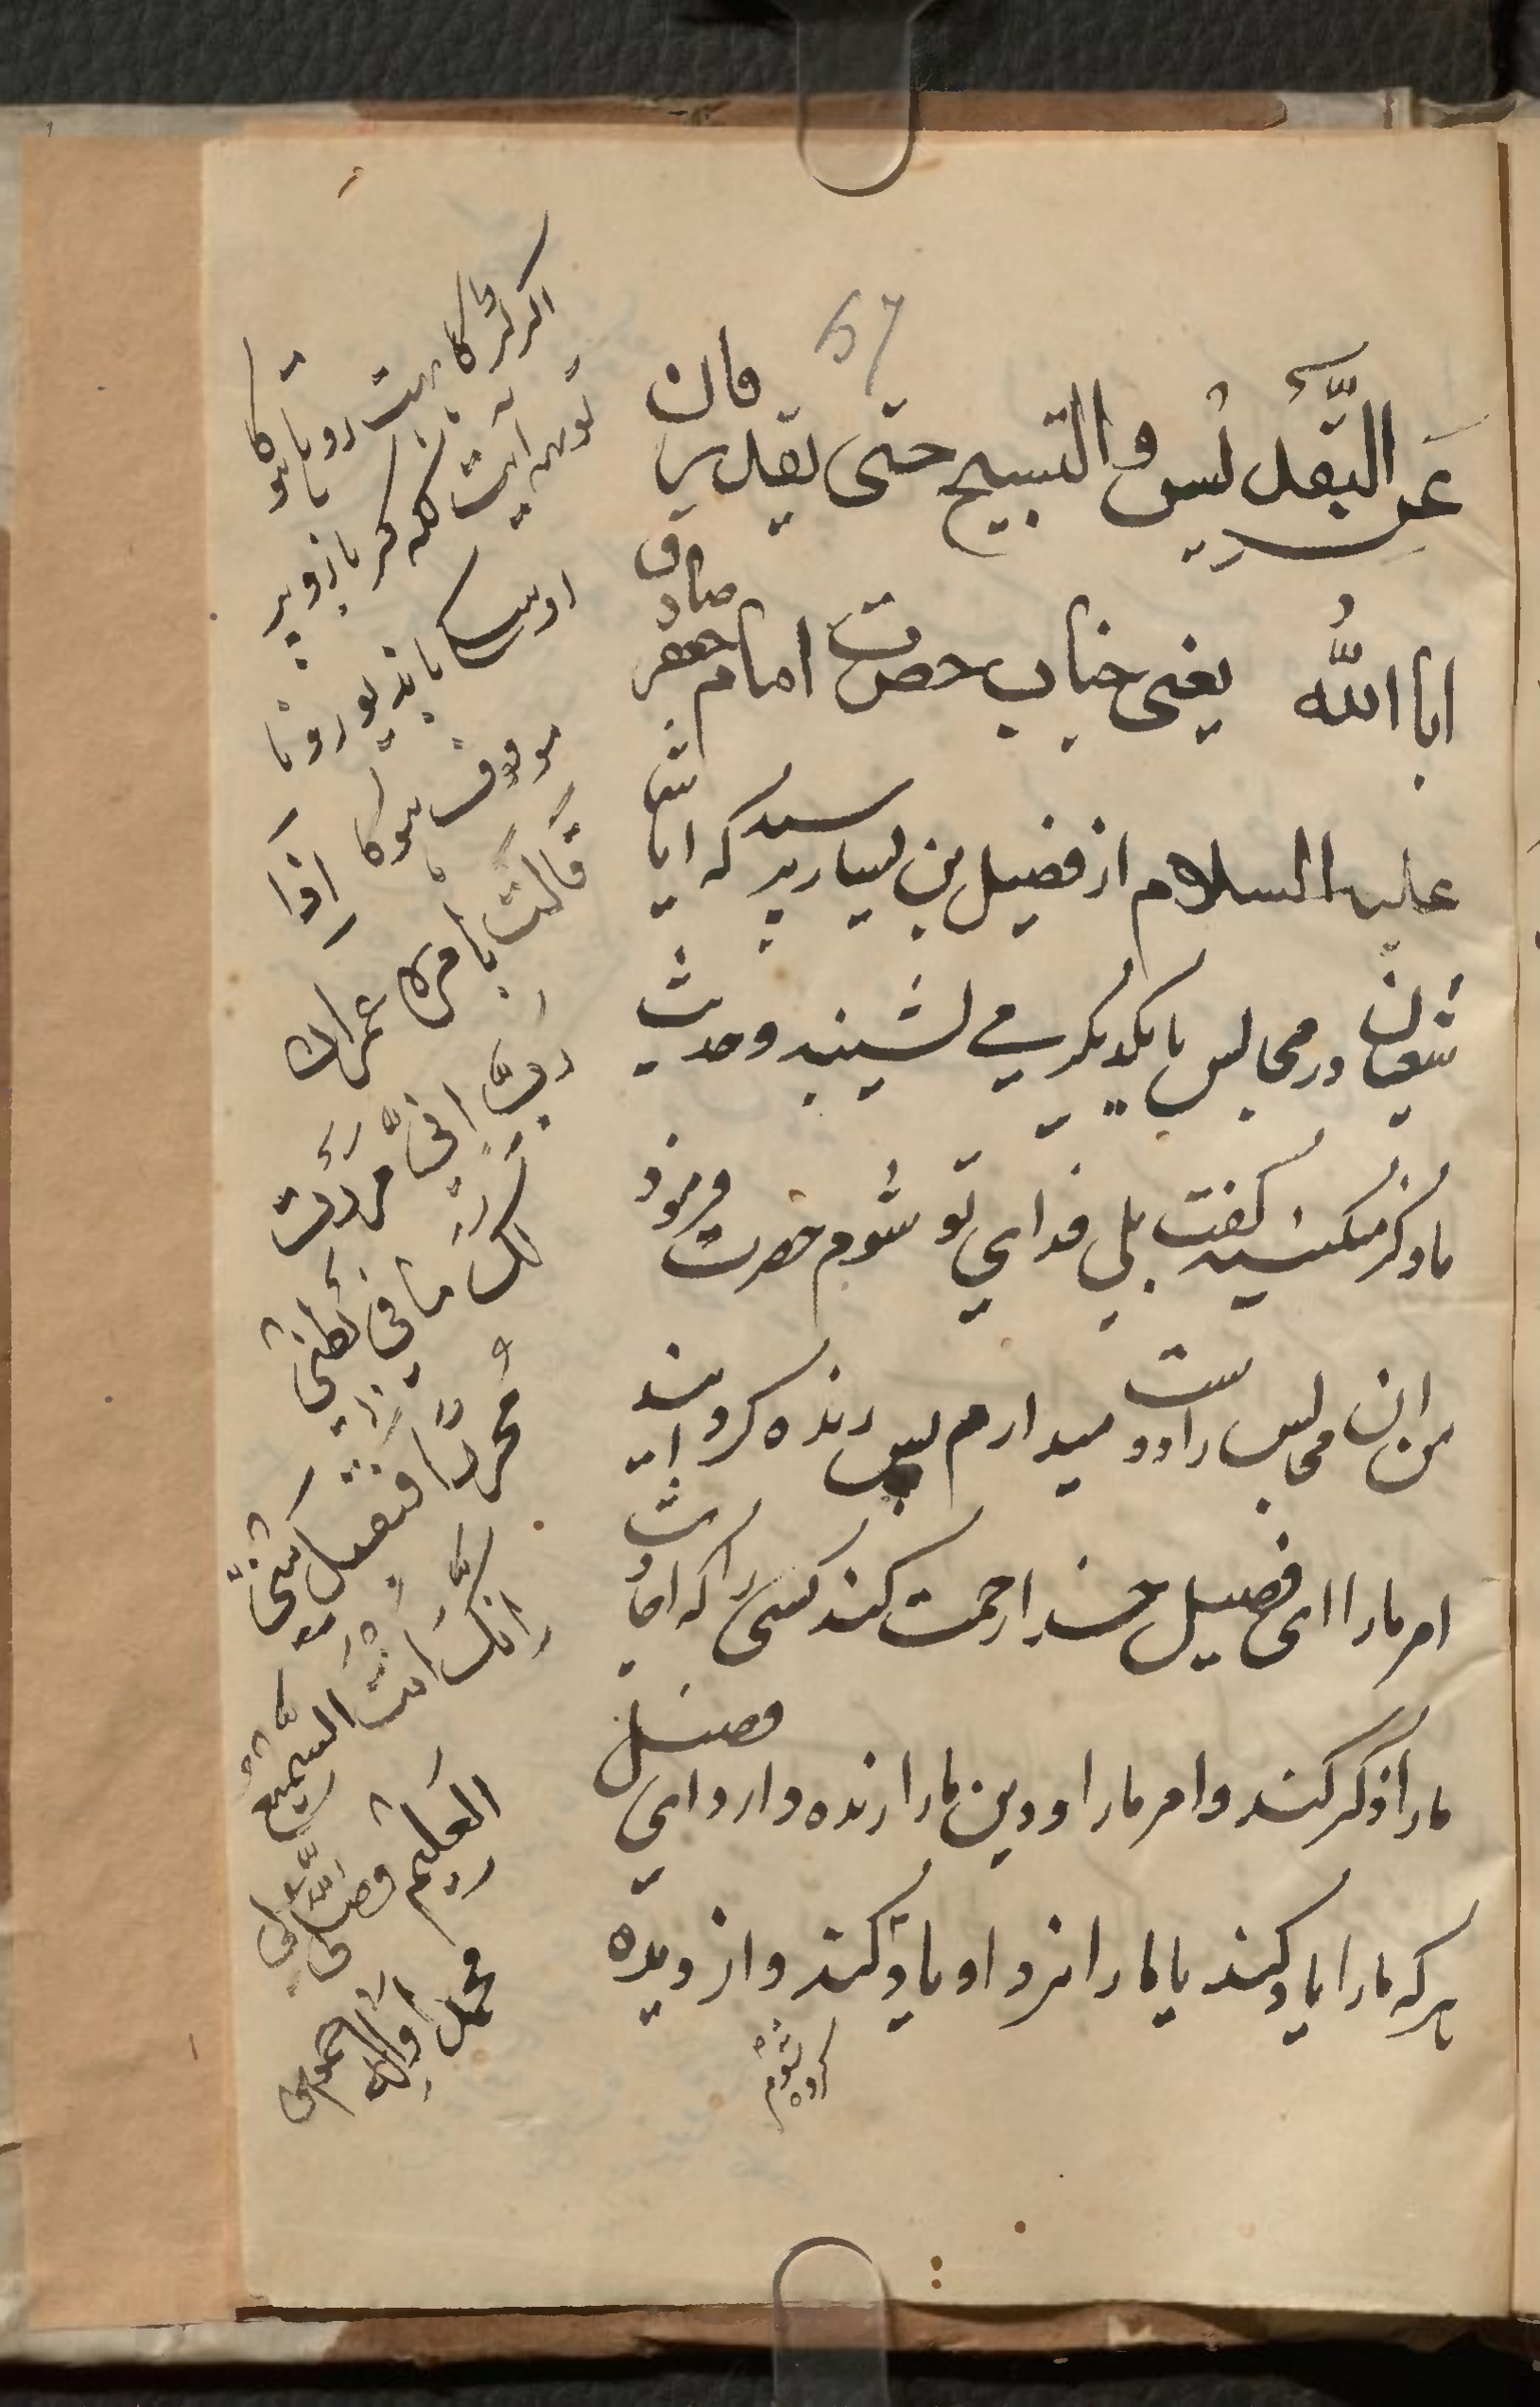 57
عَنِ التَّقدِیس والتسبیح حتی تقدیر فان
ابا اللّٰه یعنی جناب حضرت امام جعفر صادق
علیه السلام از فضیل بن یسار پرسید که ایا شما
شیعیان در مجالس با یکدیگر می نشینید و حدیث
ما ذکر میکنید گفت بلی فدای تو شوم حضرت فرمود
من ان مجالس را دوست میدارم پس زنده کردانید
امر ما را ای فضیل خدا رحمت کند کسی که احادیث
ما را ذکر کند و امر ما را و دین ما را زنده دارد ای فضیل
هر که ما را یاد کند یا ما را نزد او یاد کنند و از دیده
اکر لڑکا بہت روتا ہوگا
تو یہ آیت لکہ کر بازو پر
اوسکا باندہیو رونا
موقوف ہوگا اذا
قالت امراة عمران
رب انی نذرت
لک ما فی بطنی
محررا فتقبل منی
انک انت السمیع
العلیم وصلی اللّٰه علی
محمد وآله اجمعین